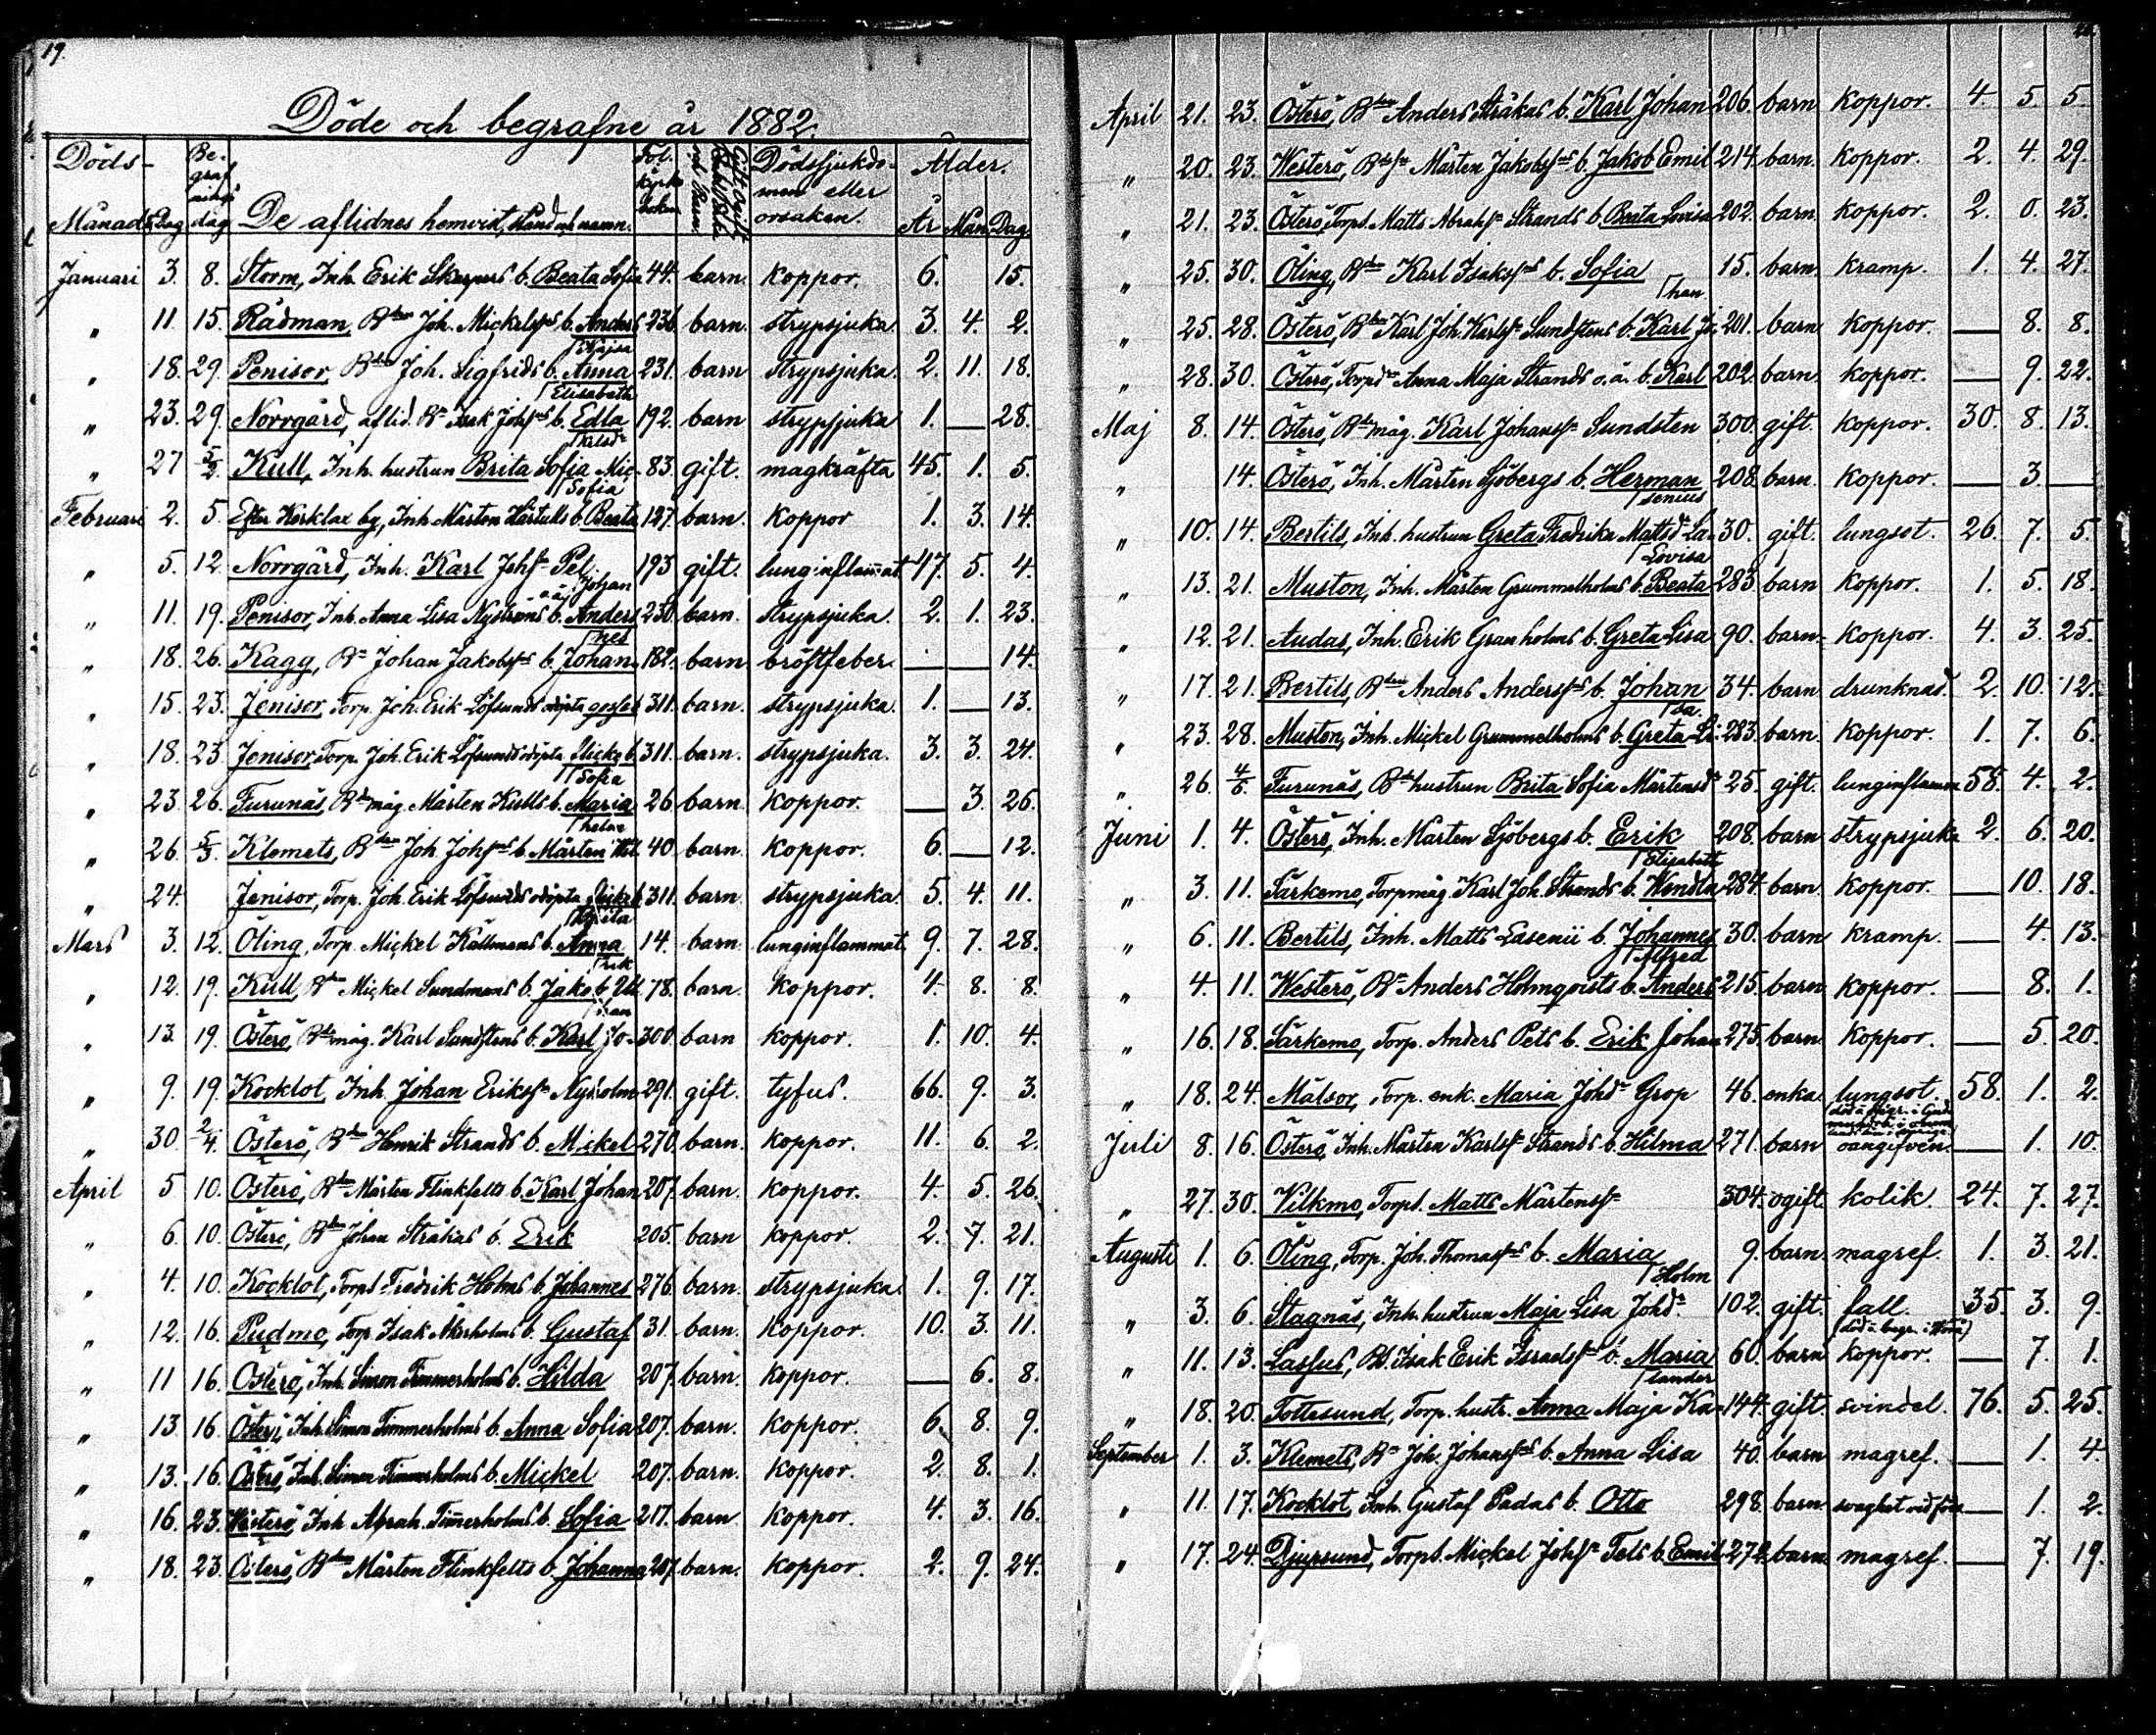 19.
Döde och begrafne år 1882.
Döds- Begrafningsdag De aflidnes hemvist, stånd och namn. Fol. kyrkoboken Dödssjukdomen eller orsaken. Ålder.
Månad Dag År Mån. Dag.
Januari 3. 8. Storm, Inh. Erik Skarpers b. Beata Sofia 44. barn koppor. 6. 15.
" 11. 15. Rådman, Bden Joh. Mickelssns b. Anders 236. barn. strypsjuka 3. 4. 2.
" 18. 29. Penisor, Bden Joh. Sigfrids b. Anna Kajsa 231. barn strypsjuka. 2. 11. 18.
" 23. 29. Norrgård, aflid. Bn Isak Johssns b. Edla Elisabeth 192. barn strypsjuka 1. — 28.
" 27 5/2. Kull, Inh. hustrun Brita Sofia Mickelsdr 83. gift. magkräfta 45. 1. 5.
Februari 2. 5. Efter Kerklax by, Inh. Mårten Härtulls b. Beata Sofia 127. barn. koppor 1. 3. 14.
" 5. 12. Norrgård, Inh. Karl Johsn Pel. 193 gift. lunginflammat. 47. 5. 4.
" 11. 19. Penisor, Inh. Anna Lisa Nyströms o.ä. b. Anders Johan 230. barn. strypsjuka. 2. 1. 23.
" 18. 26. Kagg, Bn Johan Jakobssns b. Johannes 182. barn bröstfeber — — 14.
" 15. 23. Jenisor, Torp. Joh. Erik Löfsunds odöpta gosseb. 311. barn. strypsjuka. 1. — 13.
" 18. 23. Jenisor, Torp. Joh. Erik Löfsunds odöpta flickeb. 311. barn. strypsjuka. 3. 3. 24.
" 23. 26. Furunäs, Bdemåg Mårten Kulls b. Maria Sofia 26 barn. koppor. — 3. 26.
" 26. 5/3. Klemets, Bden Joh. Johssns b. Mårten Wilhelm 40 barn. koppor. 6. — 12.
" 24. Jenisor, Torp. Joh. Erik Löfsunds odöpta flickeb. 311. barn. strypsjuka. 5. 4. 11.
Mars 3. 12. Öling, Torp. Mickel Källmans b. Anna Greta 14. barn lunginflammat. 9. 7. 28.
" 12. 19. Kull, Bden Mickel Sundmans b. Jakob Ulrik 78. barn. koppor. 4. 8. 8.
" 13. 19. Österö, Bdemåg. Karl Sundstens b. Karl Johan 300. barn koppor. 1. 10. 4.
" 9. 19. Kocklot, Inh. Johan Erikssn Nyholm 291. gift. tyfus. 66. 9. 3.
" 30 2/4. Österö, Bden Henrik Strands b. Mickel 270. barn. koppor. 11. 6. 2.
April 5 10. Österö, Bden Mårten Flinkfelts b. Karl Johan 207. barn. koppor. 4. 5. 26.
" 6. 10. Österö, Bden Johan Stråkas b. Erik 205. barn koppor. 2. 7. 21.
" 4. 10. Kocklot, Torp. Fredrik Holms b. Johannes 276. barn. strypsjuka 1. 9. 17.
" 12. 16. Pudmo, Torp. Isak Åkerholms b. Gustaf 31. barn. koppor. 10. 3. 11.
" 11 16. Österö, Inh. Simon Timmerholms b. Hilda 207. barn. koppor. — 6. 8.
" 13 16. Österö, Inh. Simon Timmerholms b. Anna Sofia 207. barn. koppor. 6. 8. 9.
" 13. 16. Österö, Inh. Simon Timmerholms b. Mickel 207. barn. koppor. 2. 8. 1.
" 16. 23. Westerö, Inh. Abrah. Timmerholms b. Sofia 217. barn koppor. 4. 3. 16.
" 18. 23. Österö, Bden Mårten Flinkfelts b. Johanna 207. barn. koppor. 2. 9. 24.
April 21. 23. Österö, Bden Anders Stråkas b. Karl Johan 206. barn koppor. 4. 5. 5.
" 20. 23. Westerö, Mårten Jakobssns b. Jakob Emil 214. barn. koppor. 2. 4. 29.
" 21. 23. Österö, Torp. Matts Abrahsn Strands b. Beata Lovisa 202. barn koppor. 2. 0. 23.
" 25. 30. Öling, Bden Karl Isakssns b. Sofia 15. barn. kramp. 1. 4. 27.
" 25. 28. Österö, Bden Karl Joh. Karlssn Sundstens b. Karl Johan 201. barn koppor. — 8. 8.
" 28. 30. Österö, Torpdr Anna Maja Strands o.ä. b. Karl 202. barn. koppor. — 9. 22.
Maj 8. 14. Österö, Bdemåg. Karl Johanssn Sundsten 300. gift. koppor. 30. 8. 13.
" 14. Österö, Inh. Mårten Sjöbergs b. Herman 208. barn. koppor. — 3. —
" 10. 14. Bertils, Inh. hustrun Greta Fredrika Mattsdr Lasenius 30. gift. lungsot. 26. 7. 5.
" 13. 21. Muston, Inh. Mårten Grummelholms b. Beata Lovisa 283. barn koppor. 1. 5. 18.
" 12. 21. Audas, Inh. Erik Granholms b. Greta Lisa 90. barn. koppor. 4. 3. 25.
" 17. 21. Bertils, Bden Anders Anderssns b. Johan 34. barn drunknad. 2. 10. 12.
" 23. 28. Muston, Inh. Mickel Grummelholms b. Greta Lisa 283. barn. koppor. 1. 7. 6.
" 26. 4/6. Furunäs, Bdehustrun Brita Sofia Mårtensdr 25. gift. lunginflamm 58. 4. 2.
Juni 1. 4. Österö, Inh. Mårten Sjöbergs b. Erik 208. barn strypsjuka 2. 6. 20.
" 3. 11. Särkemo, Torpmåg. Karl Joh. Strands b. Wendla Elisabeth 284. barn. koppor. — 10. 18.
" 6. 11. Bertils, Inh. Matts Lasenii b. Johannes 30. barn kramp. — 4. 13.
" 4. 11. Westerö, Bn Anders Holmqvists b. Anders Alfred 215. barn koppor. — 8. 1.
" 16. 18. Särkemo, Torp. Anders Pets b. Erik Johan 275. barn koppor. — 5. 20.
" 18. 24. Målsor, Torp. enk. Maria Johdr Grop 46. enka lungsot. 58. 1. 2.
Juli 8. 16. Österö, Inh. Mårten Karlssn Strands b. Hilma 271. barn oangifven. — 1. 10.
" 27. 30. Vilkmo, Torp. Matts Mårtenssn 304. ogift. kolik. 24. 7. 27.
Augusti 1. 6. Öling, Torp. Joh. Thomassns b. Maria 9. barn. magref. 1. 3. 21.
" 3. 6. Stagnäs, Inh. hustrun Maja Lisa Johdr Holm 102. gift. fall. 35. 3. 9.
" 11. 13. Lassus, Bd. Isak Erik Israelssns b. Maria 60. barn koppor. — 7. 1.
" 18. 20. Tottesund, Torp. hustr. Anna Maja Kalander 144. gift. svindel. 76. 5. 25.
September 1. 3. Klemets, Bn Joh. Johanssns b. Anna Lisa 40. barn magref. — 1. 4.
" 11. 17. Kocklot, Inh. Gustaf Padas b. Otto 298. barn. svaghet vid föds. — 1. 2.
" 17. 24. Djupsund, Torp. Mickel Johssn Tels b. Emil 272. barn. magref. — 7. 19.